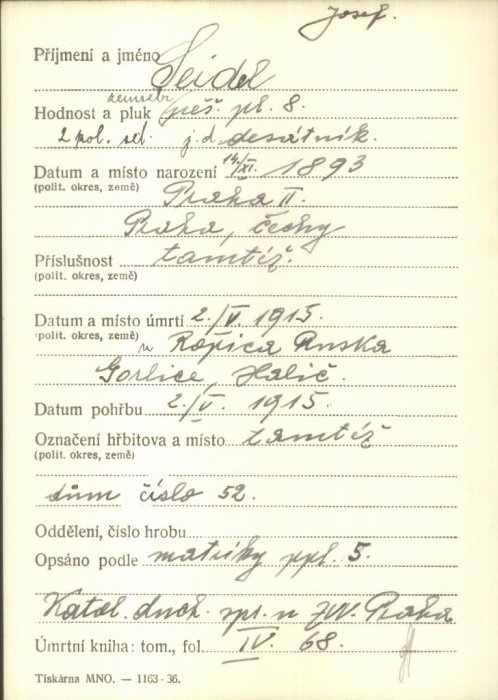 Josef.
Příjmení a jméno Seidel
zeměbr.
Hodnost a pluk pěš. pl. 8.
2 pol. set. j. d. desátník.
Datum a místo narození 14/XI. 1893
(polit. okres, země) Praha II.
Praha, Čechy
Příslušnost tamtéž.
(polit. okres, země)
Datum a místo úmrtí 2./V. 1915.
(polit. okres, země) u Ropica Ruska
Gorlice, Halič.
Datum pohřbu 2./V. 1915.
Označení hřbitova a místo tamtéž
(polit. okres, země)
dům číslo 52.
Oddělení, číslo hrobu
Opsáno podle matriky ppl. 5.
Katol. duch. spr. u ZVV. Praha
Úmrtní kniha: tom., fol. IV. 68.
Tiskárna MNO. — 1163-36.